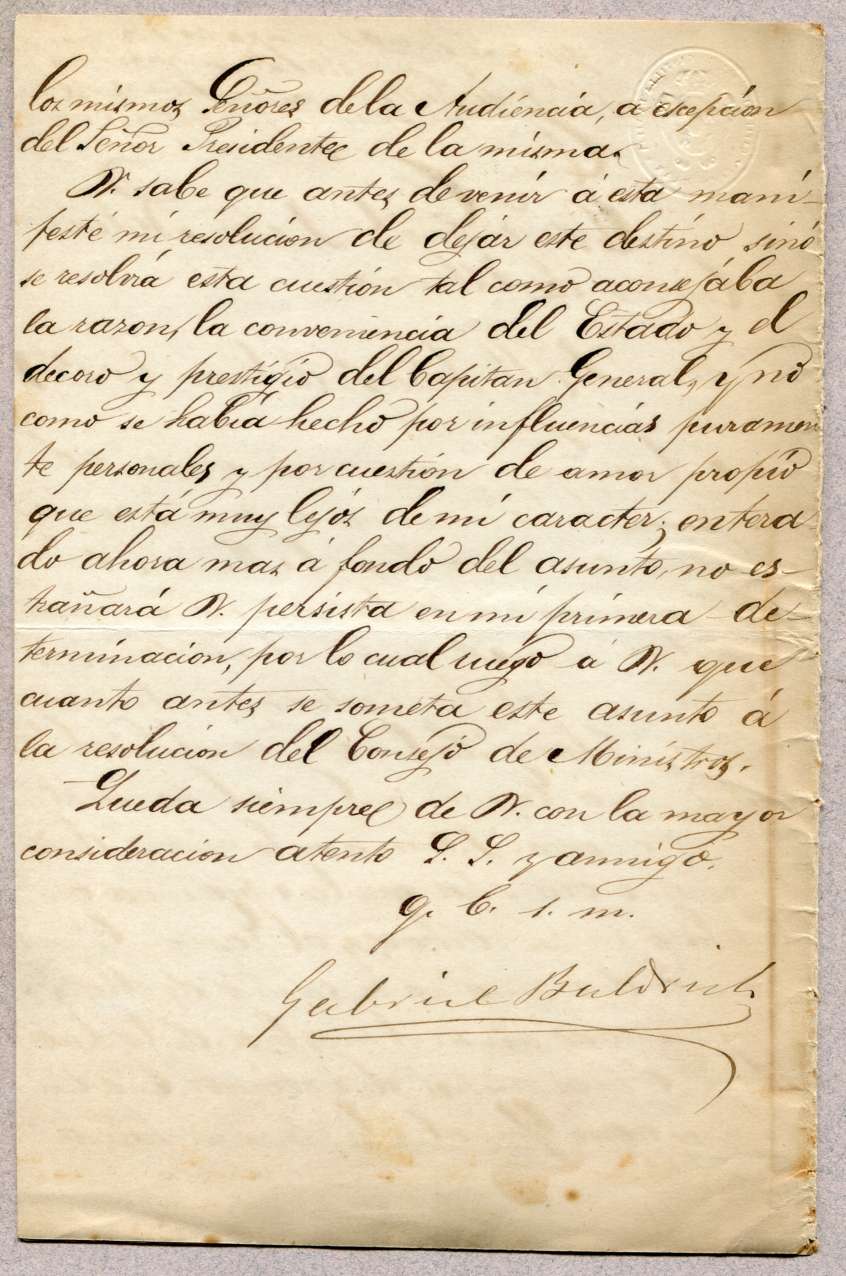 los mismos Señores de la Audiéncia, a escepcion
del Señor Presidente de la misma.
V. sabe que antes de venir á esta mani-
festé mi resolucion de dejár este destíno sinó
se resolvía esta cuestión tal como aconsejába
la razon, la conveniencia del Estado y el
decoro y prestigio del Capitan General, y nó
como se había hecho por influencias puramen
te personales y por cuestión de amor propio
que está muy lejós de mi caracter; entera-
do ahora mas á fondo del asunto, no es-
trañará V. persista en mi primera de-
terminacion, por lo cual ruego á V. que
cuanto antes se someta este asunto á
la resolucion del Consejo de Minístros.
Queda siempre de V. con la mayor
consideracion atento S. S. y amigo.
q. b. s. m.
Gabriel Baldrich